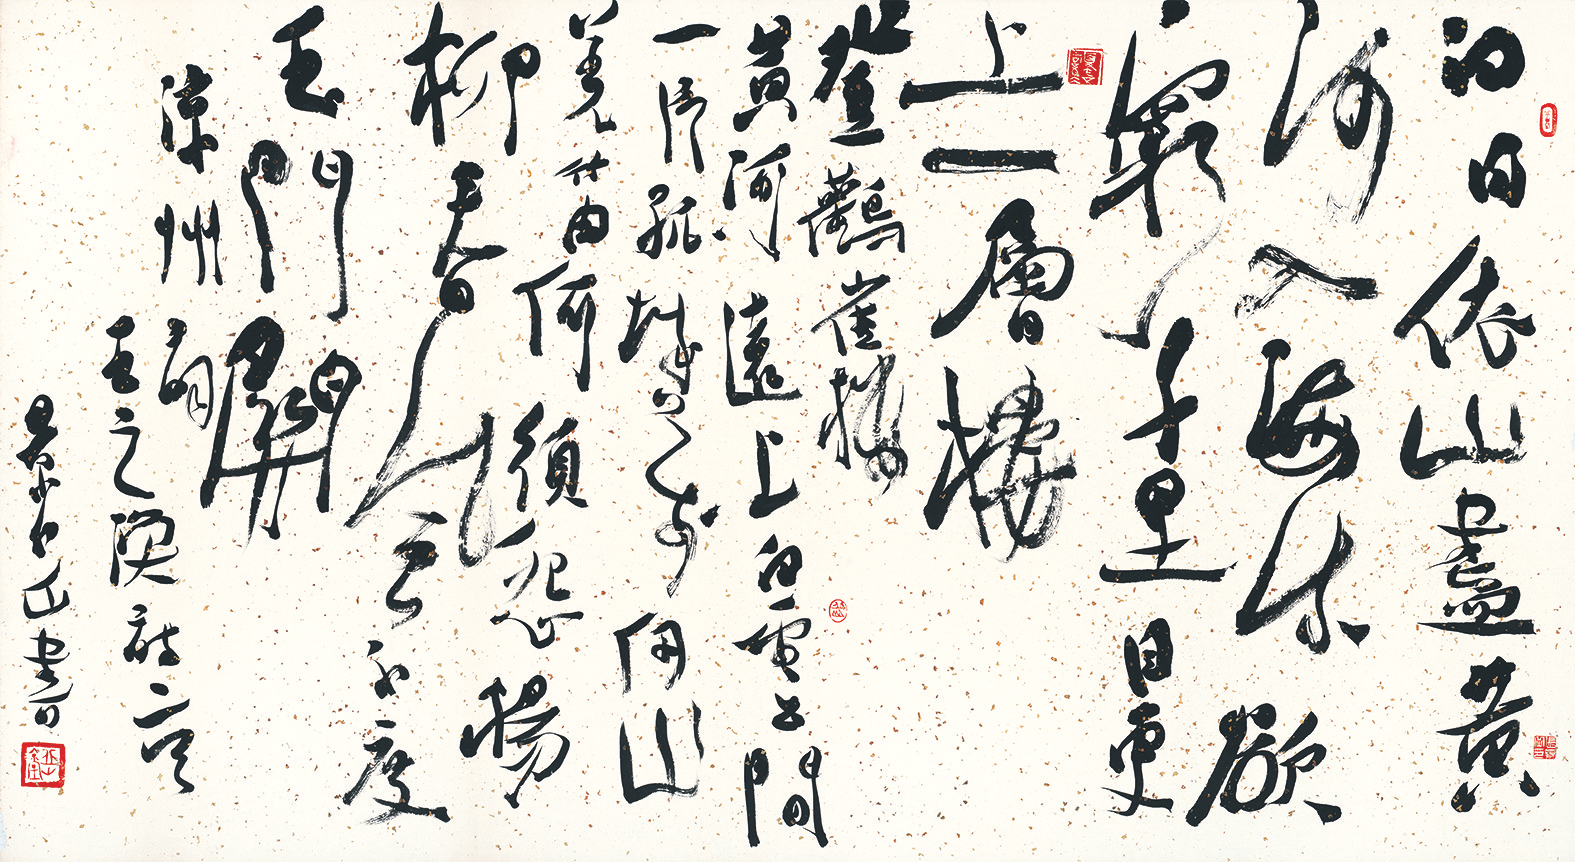 白日依山盡黄
河入海流欲
窮千里目更
上一層樓
登鸛雀樓
黄河遠上白雲間
一片孤城萬仞山
羌笛何須怨楊
柳春風不度
玉門關
涼州詞
王之渙詩二首